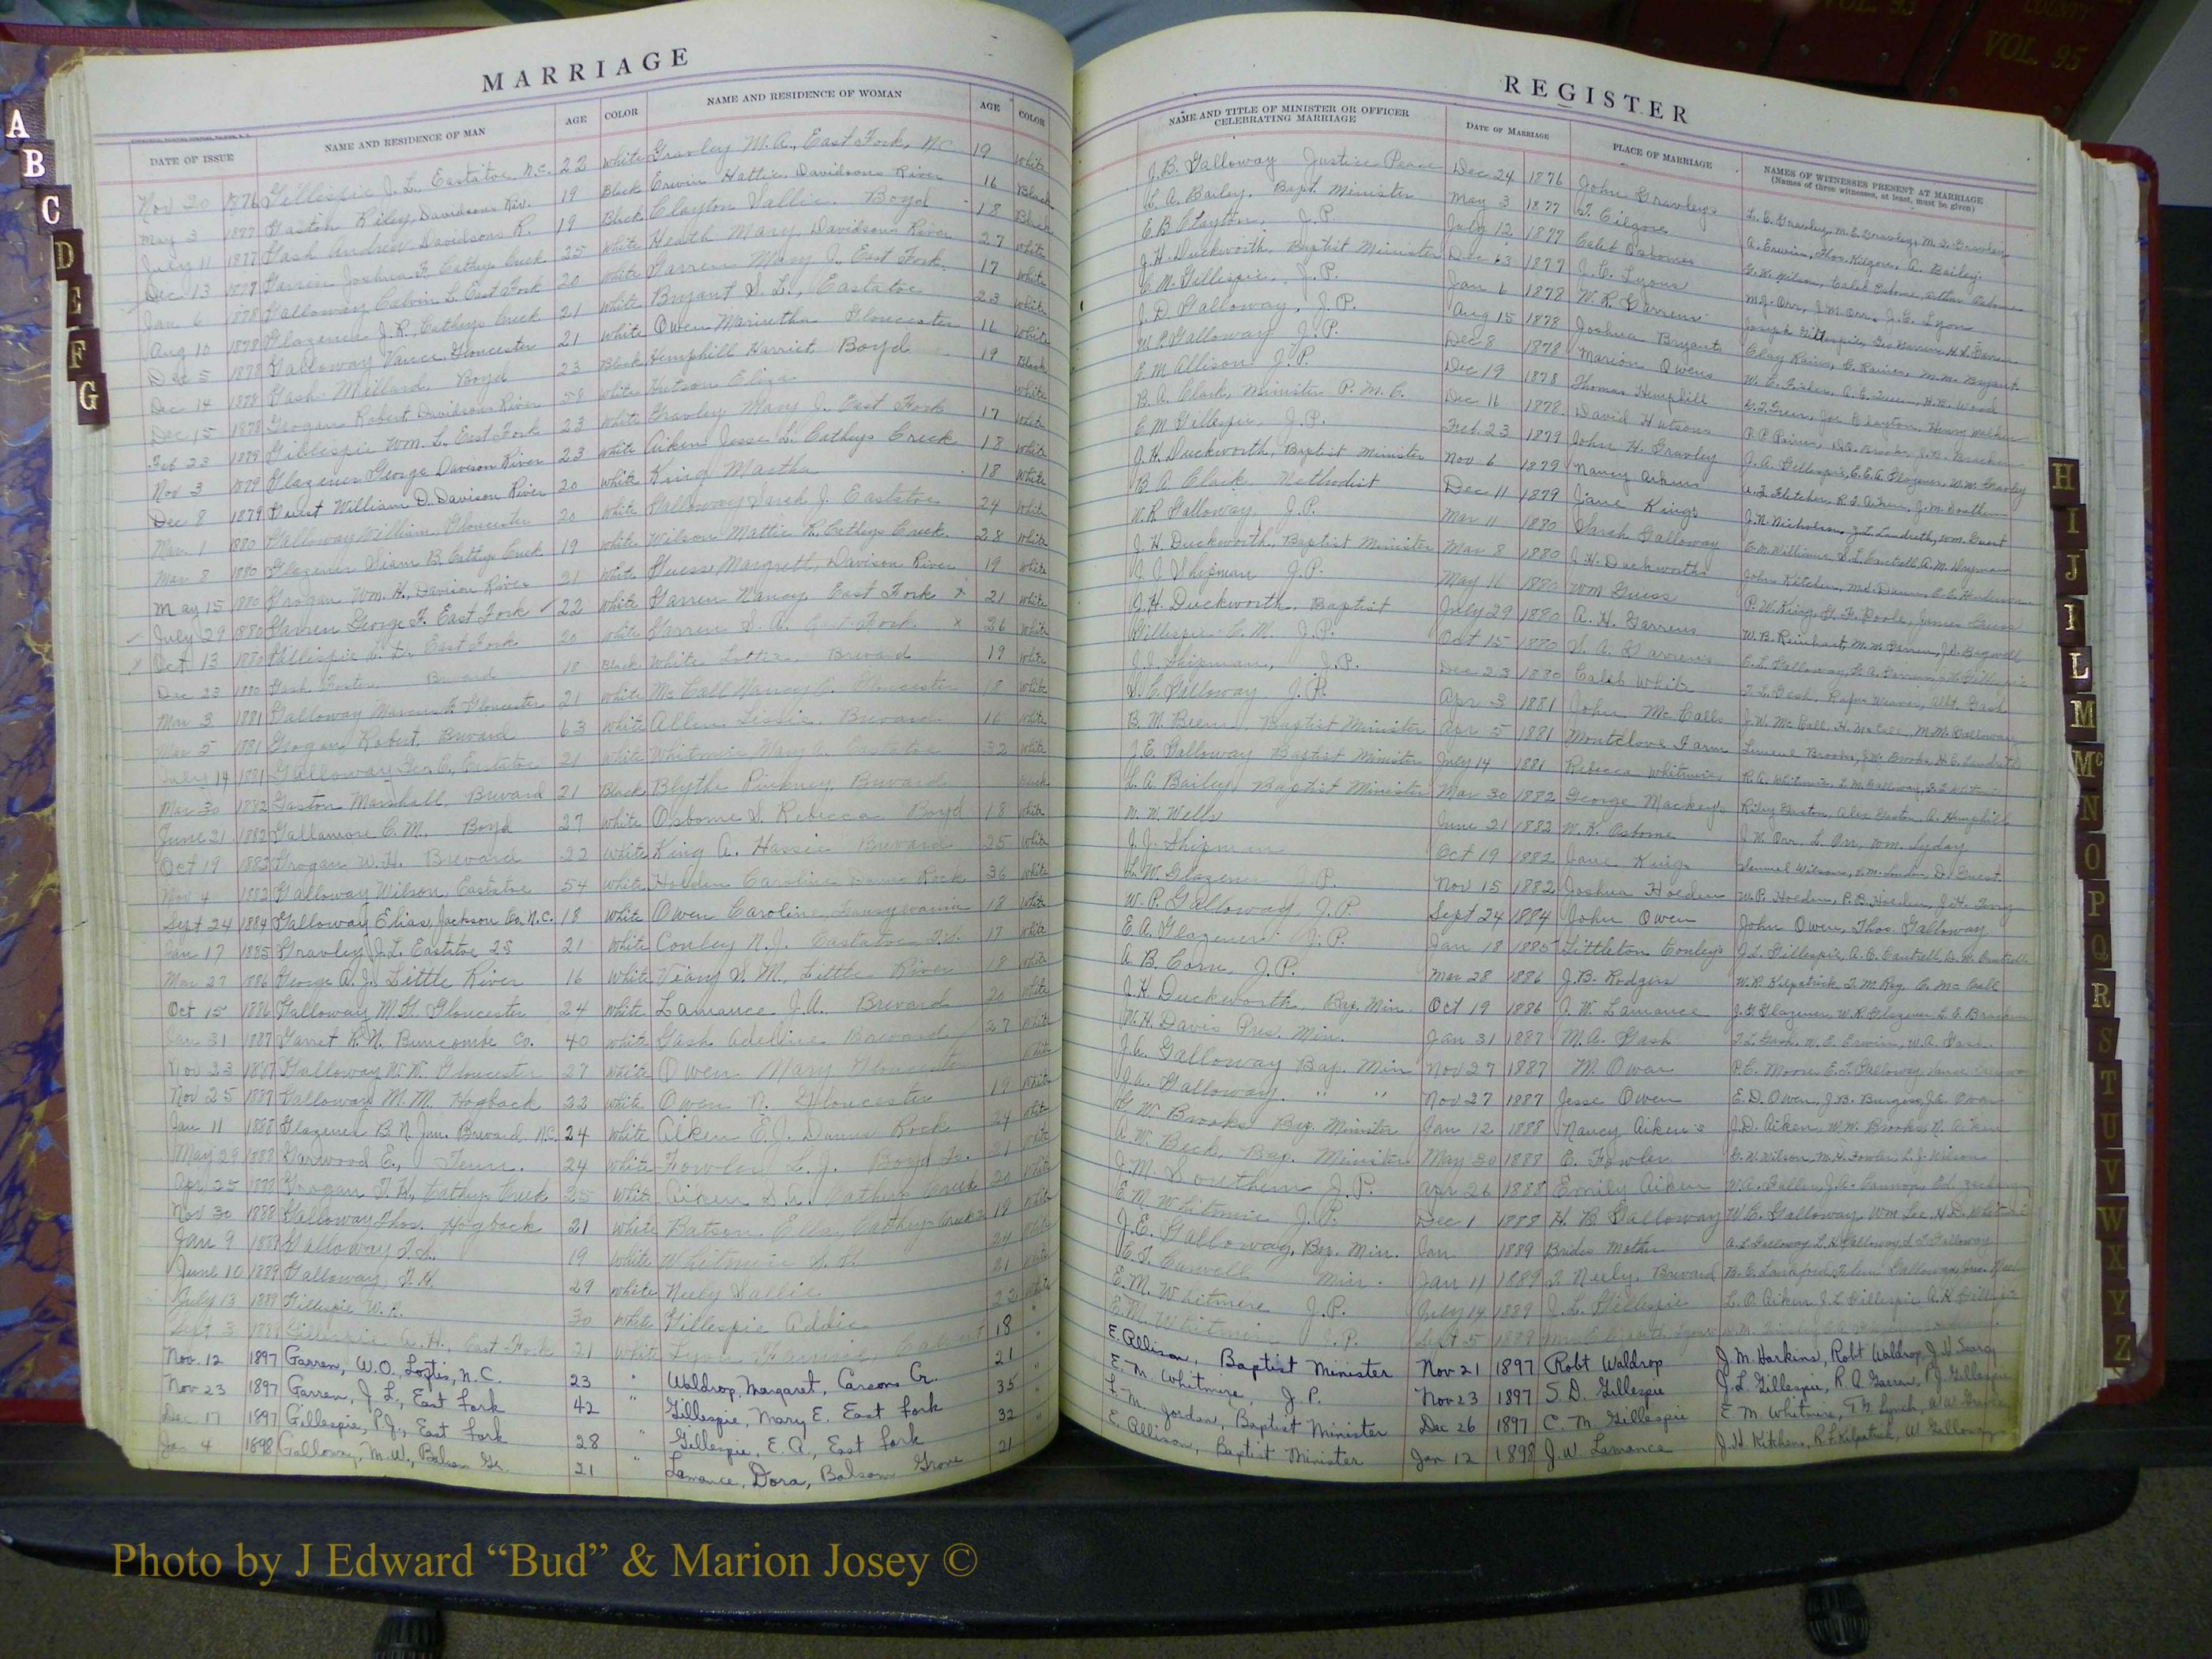 VOL. 93
COUNTY
VOL. 95
MARRIAGE
DATE OF ISSUE NAME AND RESIDENCE OF MAN AGE COLOR NAME AND RESIDENCE OF WOMAN AGE COLOR
Nov 20 1876 Gillespie J. L. Eastatoe, N.C. 22 White Gravley M. A., East Fork, N.C. 19 White
May 3 1877 Gaston Riley, Davidsons Riv. 19 Black Erwin Hattie, Davidsons River 16 Black
July 11 1877 Gash Andrew Davidsons R. 19 Black Clayton Sallie Boyd 18 Black
Dec 13 1877 Garren Joshua F. Catheys Creek 25 White Heath Mary, Davidsons River 27 White
Jan 6 1878 Galloway Calvin L. East Fork 20 White Garren Mary J. East Fork 17 White
Aug 10 1878 Glazener J. R., Catheys Creek 21 White Bryant S. L., Eastatoe 23 White
Dec 5 1878 Galloway Vance, Gloucester 21 White Owen Marinetha Gloucester 16 White
Dec 14 1878 Gash Millard Boyd 23 Black Hemphill Harriet Boyd 19 Black
Dec 15 1878 Grogan Robert Davidsons River 58 White Hutson Eliza White
Feb 23 1879 Gillespie Wm. L. East Fork 23 White Gravley Mary J. East Fork 17 White
Nov 3 1879 Glazener George Davison River 23 White Aiken Jesse L. Catheys Creek 18 White
Dec 8 1879 Guest William D. Davison River 20 White King Martha 18 White
Mar 1 1880 Galloway William, Gloucester 20 White Galloway Sarah J. Eastatoe 24 White
Mar 8 1880 Glazener Siam B. Catheys Creek 19 White Wilson Mattie R. Catheys Creek 28 White
May 15 1880 Grogan Wm. H., Davison River 21 White Guess Margrett, Davison River 19 White
July 29 1880 Garren George F. East Fork 22 White Garren Nancy East Fork x 21 White
Oct 13 1880 Gillespie East Fork 20 White Garren S. A. East Fork x 26 White
Dec 23 1880 Gash Foster Brevard 18 Black White Lottie, Brevard 19 White
Mar 3 1881 Galloway Marcus Gloucester 21 White McCall Nancy C. Gloucester 18 White
Mar 5 1881 Grogan Robert, Brevard 63 White Allen Lissie Brevard 16 White
July 14 1881 Galloway Geo. C. Eastatoe 21 White Whitmire Mary A. Eastatoe 32 White
Mar 30 1882 Gaston Marshall, Brevard 21 Black Blythe Pinkney, Brevard Black
June 21 1882 Gallamore C. M. Boyd 27 White Osborne S. Rebecca Boyd 18 White
Oct 19 1882 Grogan W. H. Brevard 22 White King A. Hassie Brevard 25 White
Nov 4 1882 Galloway Wilson, Eastatoe 54 White Holden Caroline Dunns Rock 36 White
Sept 24 1884 Galloway Elias, Jackson Co. N.C. 18 White Owen Caroline, Transylvania 18 White
Jan 17 1885 Gravley J. L. Eastatoe 21 White Conley N. J. Eastatoe 17 White
Mar 27 1886 George A. J. Little River 16 White S. M., Little River 18 White
Oct 15 1886 Galloway M. H. Gloucester 24 White Lamance J. A. Brevard 20 White
Jan 31 1887 Garret R. N. Buncombe Co. 40 White Gash Adeline Brevard 27 White
Nov 23 1887 Galloway W. W. Gloucester 27 White Owen Mary Gloucester White
Nov 25 1887 Galloway M. M. Hogback 22 White Owen N. Gloucester 19 White
Jan 11 1888 Glazener B. N. Jun. Brevard N.C. 24 White Aiken E. J. Dunns Rock 24 White
May 29 1888 Garwood E., Tenn. 24 White Fowler L. J. Boyd 21 White
Apr 25 1888 Grogan T. H. Catheys Creek 25 White Aiken S. A. Catheys Creek 20 White
Nov 30 1888 Galloway Thos. Hogback 21 White Batson Ella, Catheys Creek 19 White
Jan 9 1889 Galloway T. S. 19 White Whitmire 24 White
June 10 1889 Galloway, T. H. 29 White Neely Sallie 21 White
July 13 1889 Gillespie W. P. 30 White Gillespie Addie 22 White
Sept 3 1889 Gillespie A. H., East Fork 21 White Lyon Fannie, Calvert 18 "
Nov. 12 1897 Garren, W. O., Loftis, N. C. 23 " Waldrop, Margaret, Carsons Cr. 21 "
Nov 23 1897 Garren, J. L., East Fork 42 " Gillespie, Mary E. East Fork 35 "
Dec 17 1897 Gillespie, P. J., East Fork 28 " Gillespie, E. A., East Fork 32 "
Jan 4 1898 Galloway, M. W., Balsam Gr. 21 " Lamance, Dora, Balsam Grove 21
REGISTER
NAME AND TITLE OF MINISTER OR OFFICER CELEBRATING MARRIAGE DATE OF MARRIAGE PLACE OF MARRIAGE NAMES OF WITNESSES PRESENT AT MARRIAGE
(Names of three witnesses, at least, must be given)
J. B. Galloway Justice Peace Dec 24 1876 John Gravleys L. E. Gravley, M. E. Gravley, M. S. Gravley
L. A. Bailey, Bapt. Minister May 3 1877 T. Kilgore A. Erwin, Thos. Kilgore, A. Bailey
E. B. Clayton, J. P. July 12 1877 Caleb Osborne G. W. Wilson, Caleb Osborne, Arthur Osborne
J. H. Duckworth, Baptist Minister Dec 13 1877 J. E. Lyons M. J. Orr, J. M. Orr, J. E. Lyon
E. M. Gillespie, J. P. Jan 6 1878 W. R. Garrens Joseph Gillespie, Geo Garren, H. L. Garren
J. D. Galloway, J. P. Aug 15 1878 Joshua Bryants Clay Raines, E. Raines, M. M. Bryant
W. P. Galloway J. P. Dec 8 1878 Marion Owens W. E. Fisher, A. E. Queen, H. R. Wood
E. M. Allison J. P. Dec 19 1878 Thomas Hemphill G. T. Green, Joe Clayton, Henry
B. A. Clark, Minister P. M. C. Dec 16 1878 David Hutsons P. P. Brooks, J. B. Brackens
E. M. Gillespie, J. P. Feb 23 1879 John H. Gravley J. A. Gillespie, E. E. A. Glazener, W. W. Gravley
J. H. Duckworth, Baptist Minister Nov 6 1879 Nancy Aikens A. J. Fletcher, R. T. Aiken, J. M. Southern
B. A. Clark, Methodist Dec 11 1879 Jane Kings J. N. Nicholson, Z. L. Landreth, Wm. Guest
W. R. Galloway, J. P. Mar 11 1880 Sarah Galloway E. M. Williams, S. L. Cantrell, A. M. Heyman
J. H. Duckworth, Baptist Minister Mar 8 1880 J. H. Duckworths John Kitchen, E. E. Henderson
J. J. Shipman J. P. May 16 1880 Wm Guess P. W. King, Poole, James Guess
J. H. Duckworth, Baptist July 29 1880 A. H. Garrens W. B. Reinhart, M. M. Garren, J. L. Bagwell
Gillespie E. M. J. P. Oct 15 1880 S. A. Garrens
J. J. Shipman, J. P. Dec 23 1880 Caleb White T. L. Gash, Rufus Weaver, Albt. Gash
S. C. Galloway J. P. Apr 3 1881 John McCalls J. W. McCall, H. McCall, M. M. Galloway
B. M. Beene, Baptist Minister Apr 5 1881 Montclove Farm Lemuel Brooks, J. W. Brooks, H. E. Landreth
J. E. Galloway Baptist Minister July 14 1881 Rebecca Whitmire R. A. Whitmire, L. M. Galloway
L. A. Bailey Baptist Minister Mar 30 1882 George Mackey's Riley Gaston, Alex Gaston, A. Hemphill
W. W. Wells June 21 1882 W. K. Osborne J. M. Orr, L. Orr, Wm. Lyday
J. J. Shipman Oct 19 1882 Jane Kings Samuel Wilson, D. Guest
L. W. Glazener J. P. Nov 15 1882 Joshua Holden W. P. Holden, P. B. Holden, J. H.
W. P. Galloway, J. P. Sept 24 1884 John Owen John Owen, Thos. Galloway
E. A. Glazener J. P. Jan 18 1885 Littleton Conley's J. L. Gillespie, A. C. Cantrell, D. W. Cantrell
A. B. Corn, J. P. Mar 28 1886 J. B. Rodgers W. R. Kilpatrick, T. M. Ray, C. McCall
J. H. Duckworth, Bap. Min. Oct 19 1886 J. W. Lamance J. G. Glazener, W. R. Glazener
W. H. Davis Pres. Min. Jan 31 1887 M. A. Gash T. L. Gash, W. E. Erwin, W. A. Gash
J. C. Galloway Bap. Min Nov 27 1887 M. Owen P. C. Moore, E. T. Galloway, Vance
J. C. Galloway " " Nov 27 1887 Jesse Owen E. D. Owen, J. B. Burgess, J. A. Owen
G. W. Brooks Bap. Minister Jan 12 1888 Nancy Aiken's J. D. Aiken, W. W. Brooks, N. Aiken
A. W. Beck, Bap. Minister May 30 1888 E. Fowler G. W. Wilson, M. H. Fowler, L. J. Wilson
J. M. Southern J. P. Apr 26 1888 Emily Aiken
E. M. Whitmire J. P. Dec 1 1888 H. B. Galloway W. C. Galloway, Wm Lee
J. E. Galloway, Bap. Min. Jan 1889 Brides Mother
E. T. Carwell Min. Jan 11 1889 T. Neely, Brevard
E. M. Whitmire J. P. July 14 1889 J. L. Gillespie L. P. Aiken, J. L. Gillespie, A. H. Gillespie
E. M. Whitmire J. P. Sept 5 1889
E. Allison, Baptist Minister Nov 21 1897 Robt Waldrop J. M. Harkins, Robt Waldrop, J. H. Searcy
E. M. Whitmire, J. P. Nov 23 1897 S. D. Gillespie J. L. Gillespie, R. A. Garren, P. J. Gillespie
F. M. Jordan, Baptist Minister Dec 26 1897 C. M. Gillespie E. M. Whitmire, T. B. Lynch, W. W.
E. Allison, Baptist Minister Jan 12 1898 J. W. Lamance J. H. Kitchen, R. F. Kilpatrick, W Galloway
A
B
C
D
E
F
G
H
I
J
I
L
M
Mc
N
O
P
Q
R
S
T
U
V
W
X
Y
Z
Photo by J Edward “Bud” & Marion Josey ©